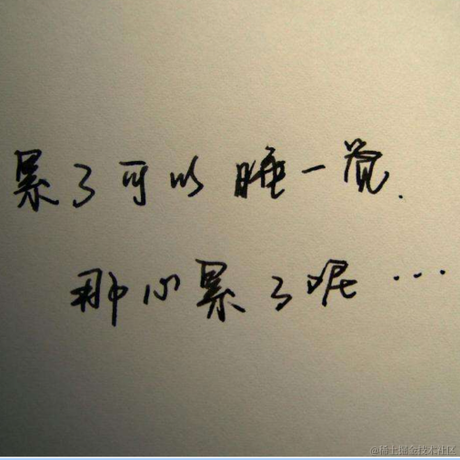 累了可以睡一觉.
那心累了呢...
@稀土掘金技术社区